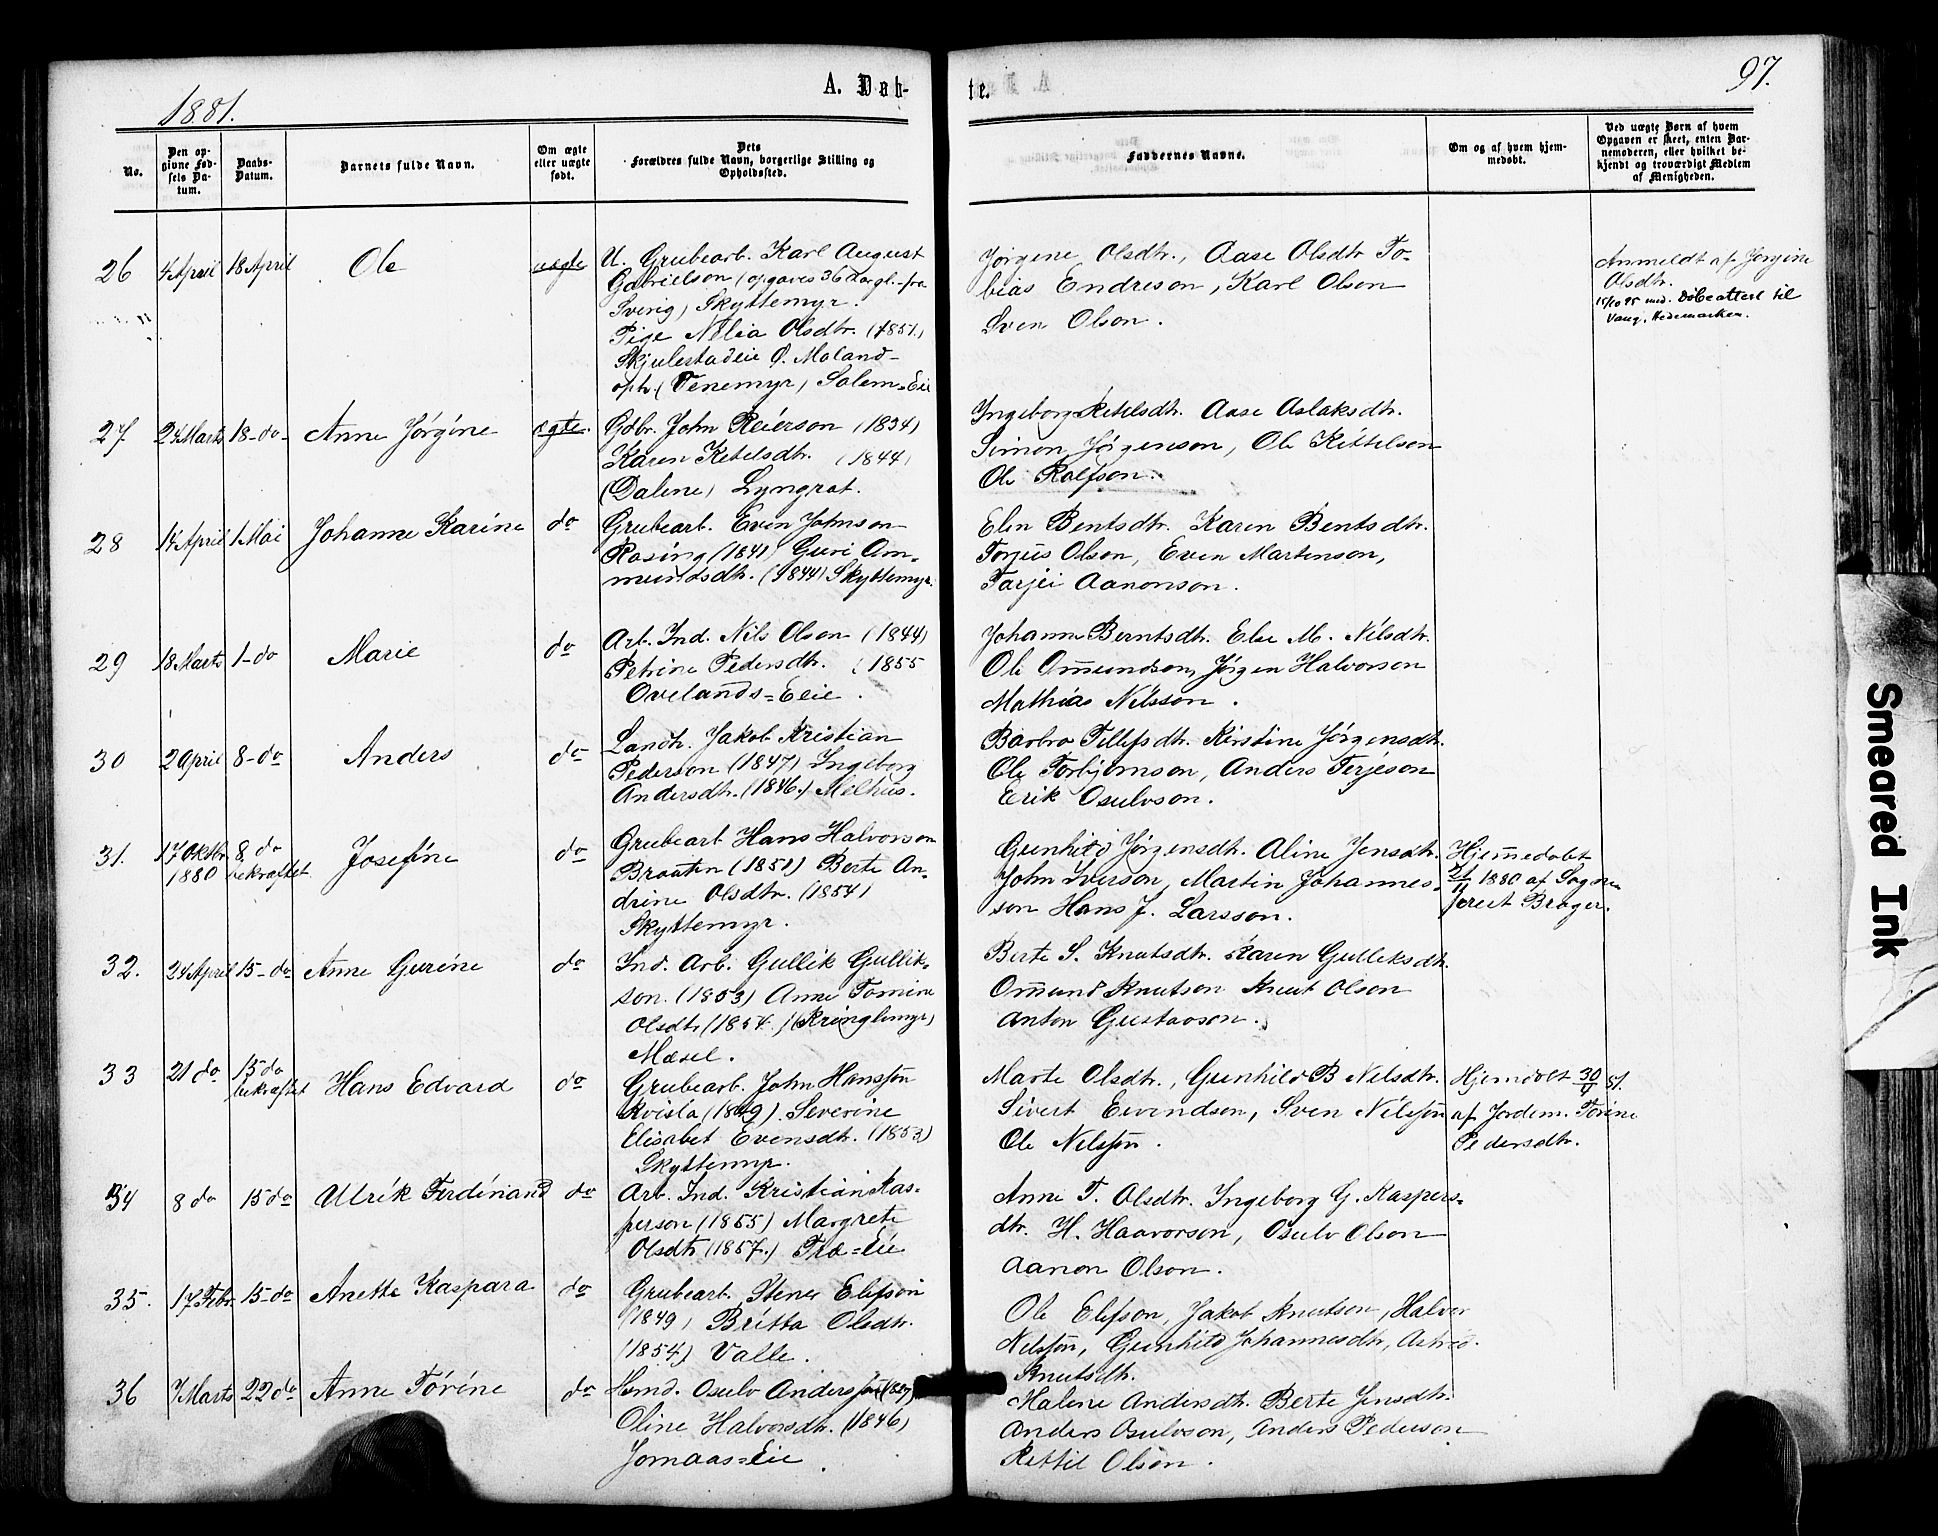 1881.
A. Døb-
te.
97.
No.
Den op-
givne Fød-
sels Da-
tum.
Daabs-
Datum.
Barnets fulde Navn.
Om ægte
eller uægte
født.
Dets
Forældres fulde Navn, borgerlige Stilling og
Opholdssted.
Faddernes Navne.
Om og af hvem hjem-
medøbt.
Ved uægte Børn af hvem
Opgaven er skeet, enten Bar-
nemoderen, eller hvilket be-
kjendt og troværdigt Medlem
af Menigheden.
26
4 April
18 April
Ole
uægte
U. Grubearb. Karl August
Gabrielson (opgaves 36 Aar gl. fra
Sverig) Skyttemyr.
Pige Nelia Olsdtr. (1851)
Skjulestadeie Ø. Moland-
oph. (Venemyr) Solem=Eie
Jørgene Olsdtr., Aase Olsdtr To-
bias Endreson, Karl Olson
Sven Olson.
Anmeldt af Jørgine
Olsdtr.
15/10 95 med. Døbeattest til
Vang, Hedemarken.
27
24 Marts
18-do-
Anne Jørgine
ægte.
Gdbr. John Reierson (1834)
Karen Ketelsdtr. (1844)
(Dalene) Lyngrot.
Ingeborg Ketelsdtr. Aase Aslaksdtr.
Simon Jørgenson, Ole Kittelson
Ole Rolfson.
28
14 April
1 Mai
Johanne Karine
do
Grubearb. Even Johnson
Rosing (1841) Guri Om-
mundsdtr. (1844) Skyttemyr.
Elen Bentsdtr. Karen Bentsdtr.
Torjus Olson, Even Martenson,
Tarjei Aanonson.
29
18 Marts
1-do
Marie
do
Arb. Ind. Nils Olson (1844)
Petrine Pedersdtr. (1855
Ovelands=Eeie.
Johanne Berntsdtr. Else M. Nilsdtr.
Ole Om̄undson, Jørgen Halvorson
Mathias Nilsson.
30
2 April
8-do
Anders
do
Landh. Jakob Kristian
Pederson (1847) Ingeborg
Andersdtr. (1846.) Melhus.
Barbro Tellefsdtr. Kirstine Jørgensdtr.
Ole Torbjørnson, Anders Terjeson
Erik Osulvson.
31.
17 Oktbr
1880
8 do
bekræftet
Josefine
do
Grubearb Hans Halvorson
Braaten (1851) Berte An-
drine Olsdtr. (1854)
Skyttemyr.
Gunhild Jørgensdtr. Aline Jensdtr.
John Iverson, Martin Johannes-
son Hans J. Larsson.
Hjem̄edøbt
21/11 1880 af Sogne-
preст Brager.
32.
24 April
15-do
Anne Gurine
do
Ind. Arb. Gullik Gullik-
son. (1853) Anne Tomine
Olsdtr (1857.) (Kringlemyr)
Mæsel.
Berte S. Knutsdtr. Karen Gulleksdtr.
Om̄und Knutson Knut Olson
Anton Gustavson.
33
21 do
15 do
bekræftet
Hans Edvard
do
Grubearb. John Hansson
Kvisla (1849). Severine
Elisabet Evensdtr. (1853)
Skyttemyr.
Marte Olsdtr., Gunhild B Nilsdtr.
Sivert Eivendson, Sven Nilsson
Ole Nilsson.
Hjemdøbt 30/4 81.
af Jordem. Torine
Pedersdtr.
34
8 do
15 do
Ulrik Ferdinand
do
Arb. Ind. Kristian Kas-
person (1855) Margrete
Olsdtr (1857.) Træ=Eie
Anne T. Olsdtr. Ingeborg G. Kaspers=
dtr. H. Haavorson, Osulv Olson
Aanon Olson.
35.
17 Febr.
15-do
Anette Kaspara
do
Grubearb. Stener Elefson
(1849) Britta Olsdtr.
(1854) Valle.
Ole Elefson, Jakob Knutson, Halvor
Nilsson, Gunhild Johannesdtr, Astrid
Knutsdtr.
36
7 Marts
22 do
Anne Torine
do
Hsmd. Osulv Andersson
Oline Halvorsdtr. (1846)
Jomaas=Eie
Halene Andersdtr. Berte Jensdtr.
Anders Osulvson, Anders Pederson
Kittil Olson.
Smeared Ink